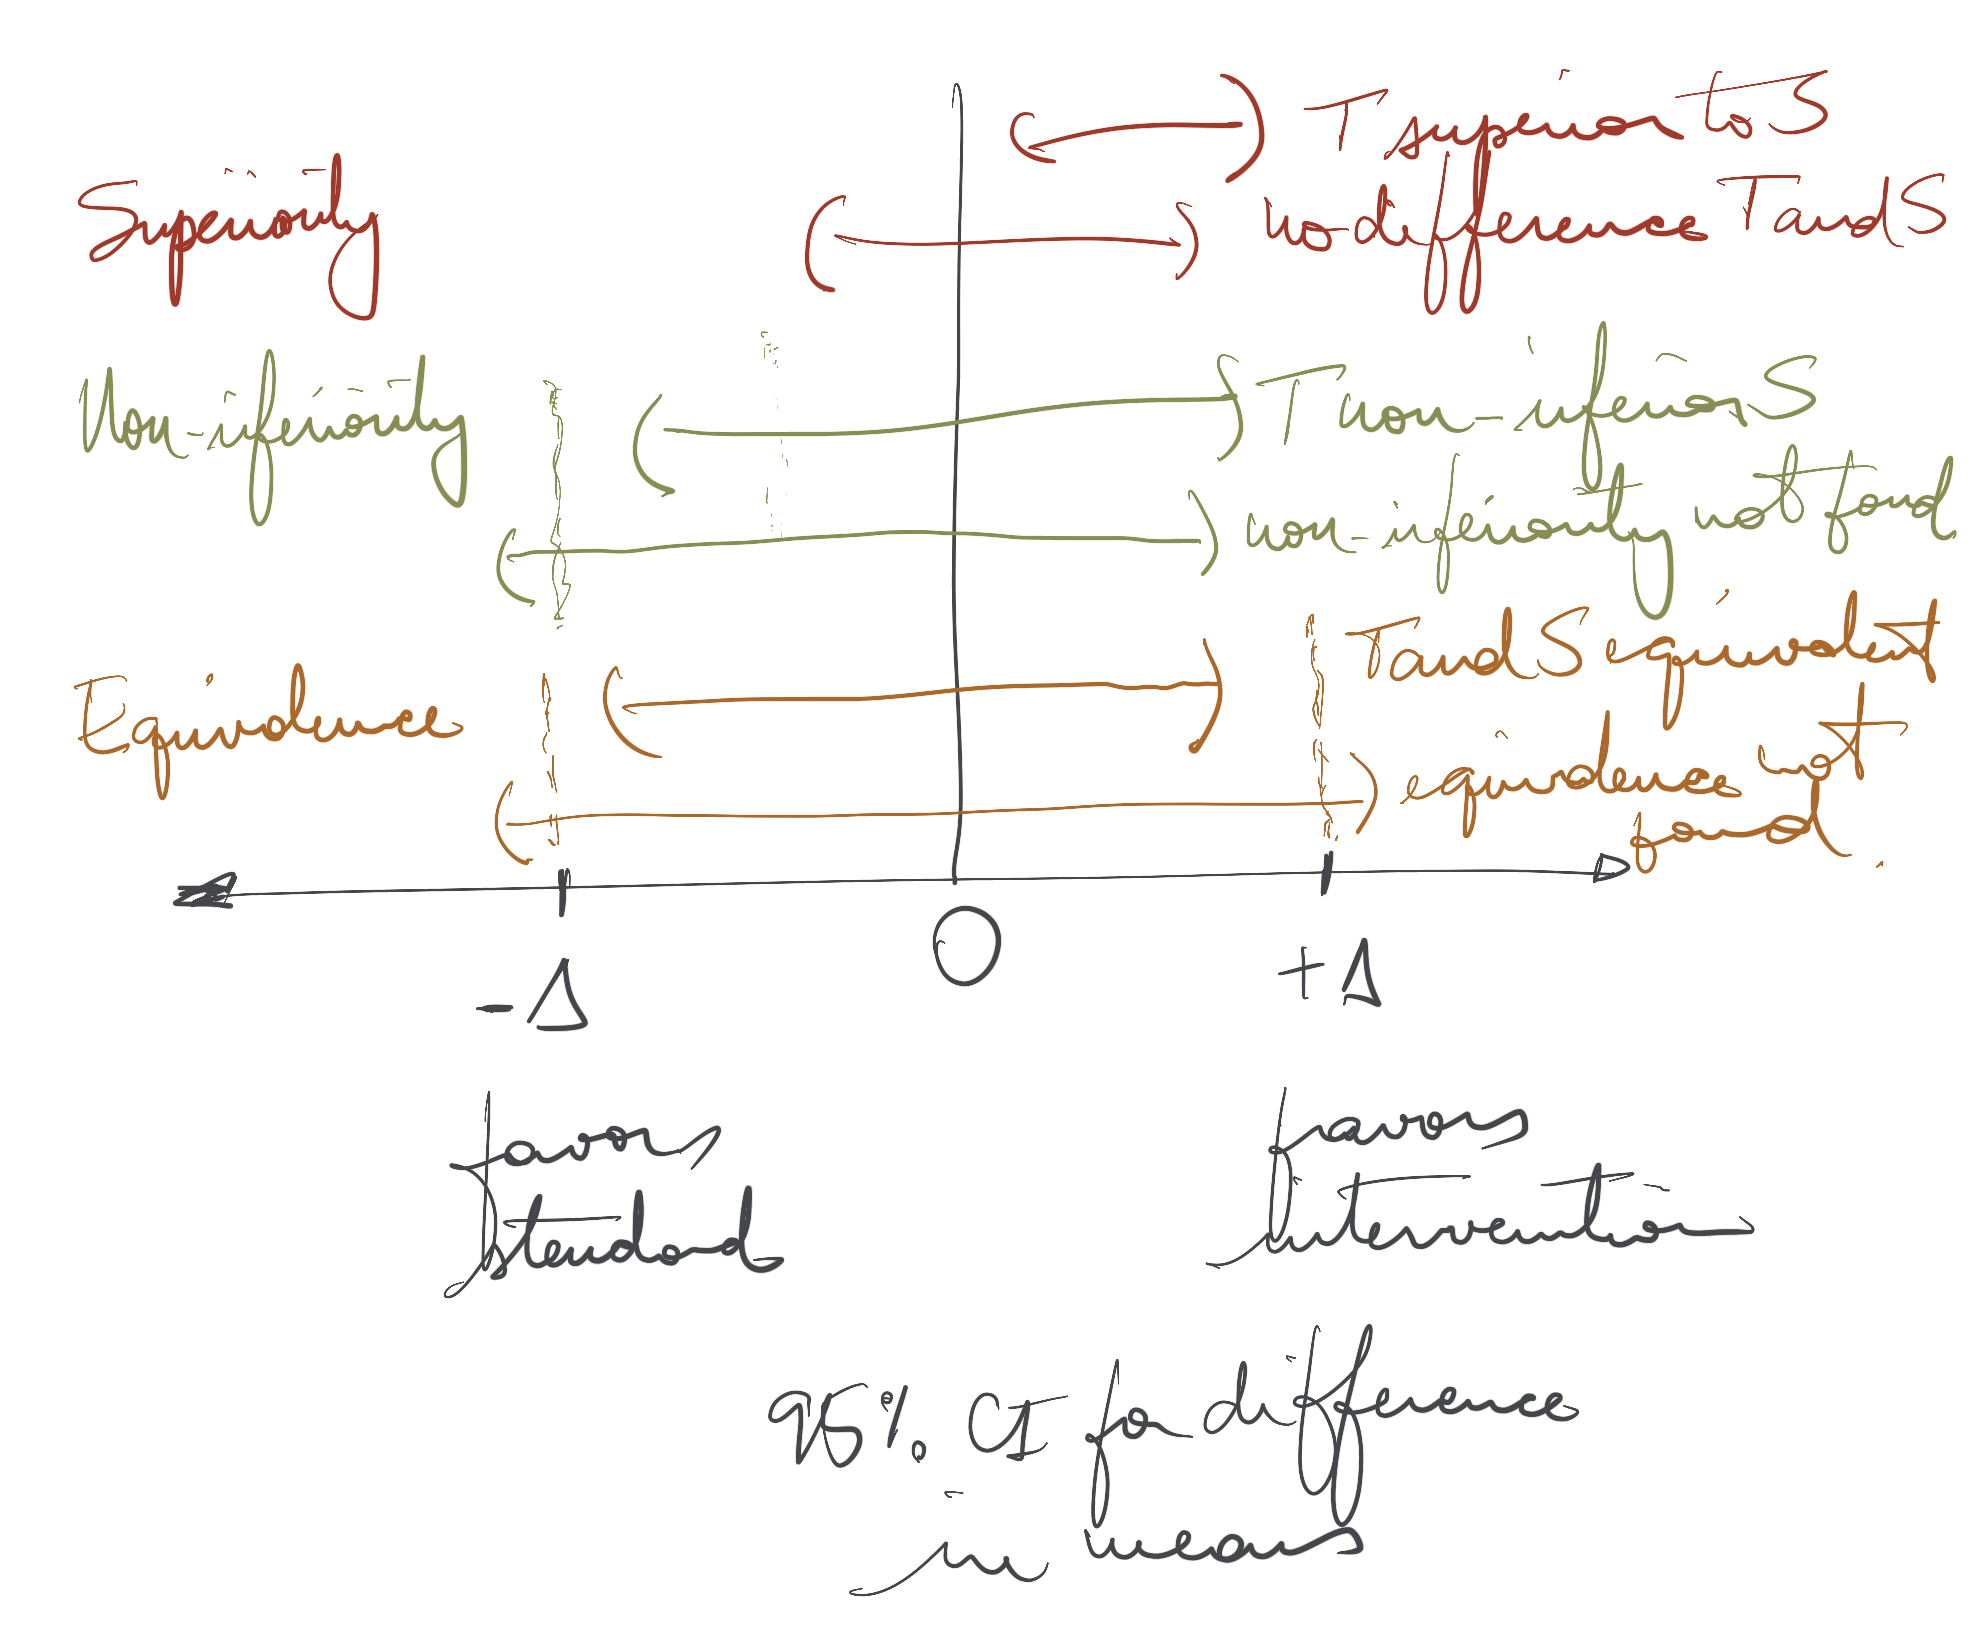 T superior to S
Superiority
no difference T and S
Non-inferiority
T non-inferior S
non-inferiority not fond
Equivalence
T and S equivalent
equivalence not
fond.
-Δ
0
+Δ
favors
standard
favors
intervention
95% CI for difference
in means